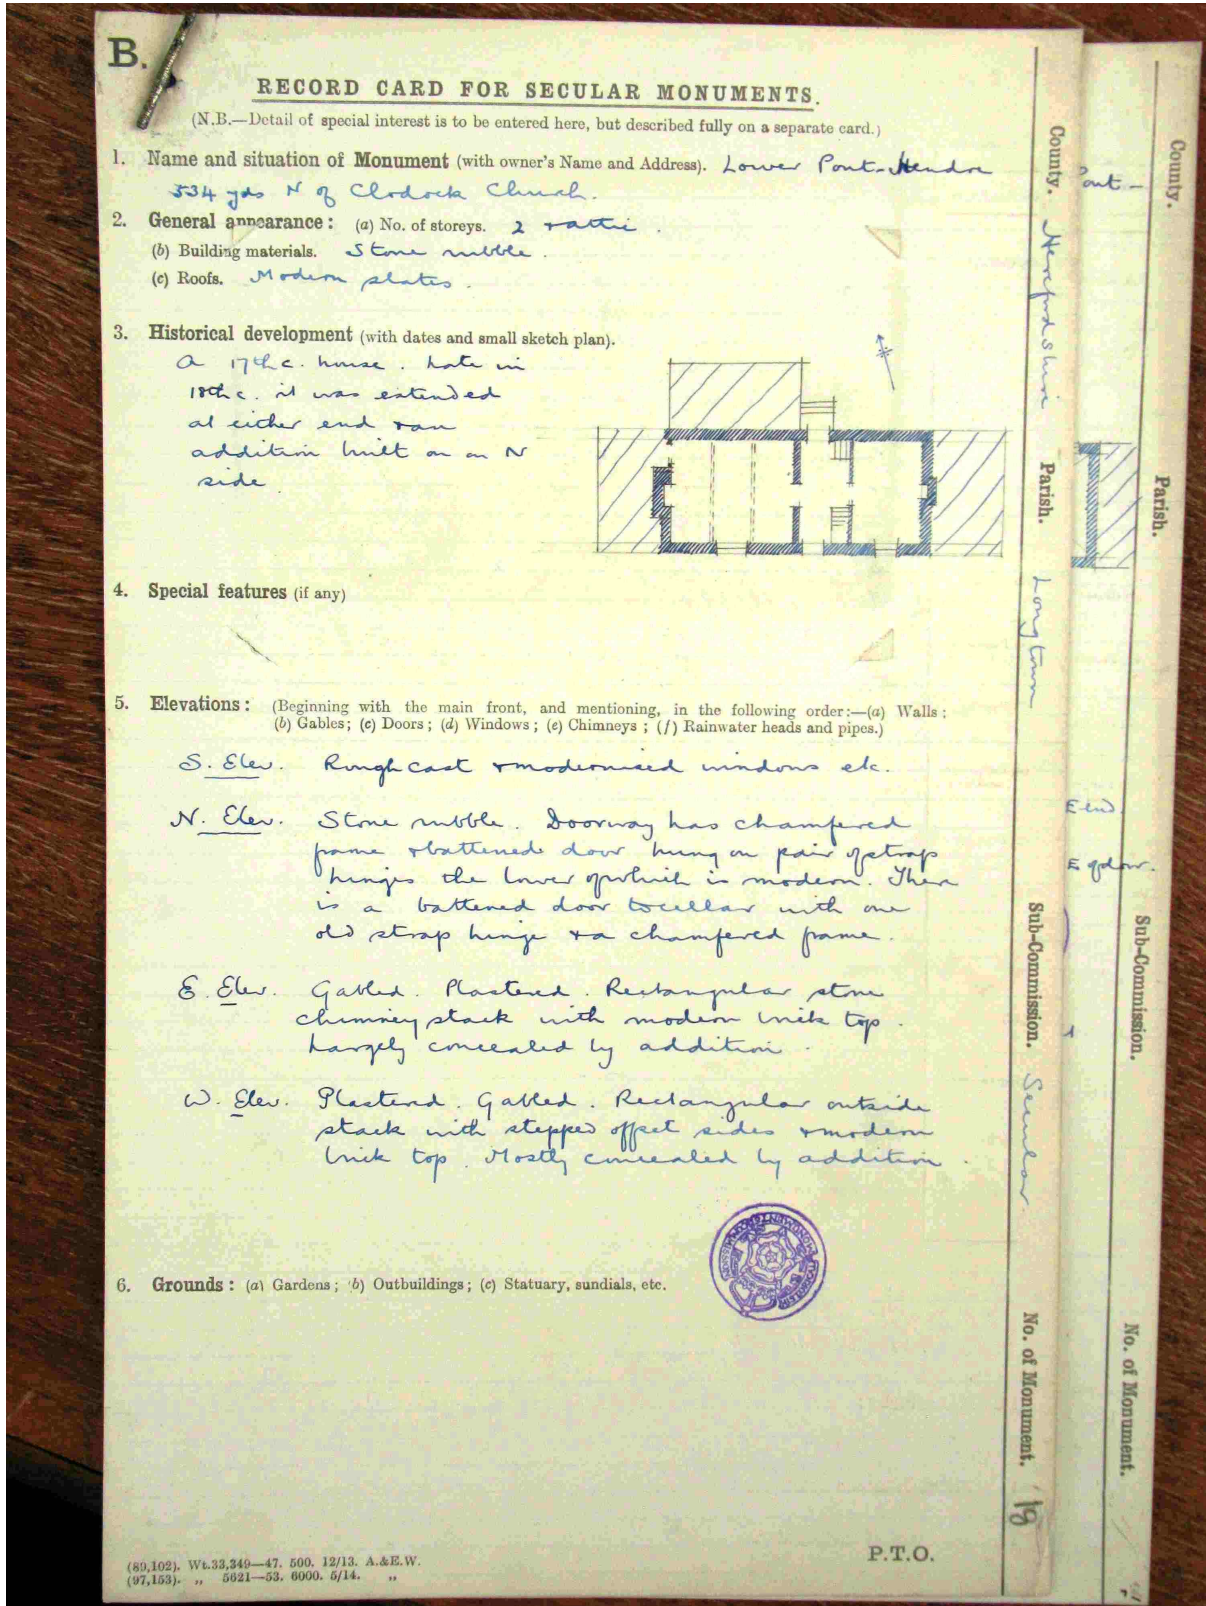 B.
RECORD CARD FOR SECULAR MONUMENTS.
(N.B.—Detail of special interest is to be entered here, but described fully on a separate card.)
1. Name and situation of Monument (with owner's Name and Address). Lower Pont-Hendre
534 yds N of Clodock Church.
2. General appearance: (a) No. of storeys. 2 + attic.
(b) Building materials. Stone rubble.
(c) Roofs. Modern slates.
3. Historical development (with dates and small sketch plan).
A 17th c. house. Late in
18th c. it was extended
at either end + an
addition built on on N
side
4. Special features (if any)
5. Elevations: (Beginning with the main front, and mentioning, in the following order:—(a) Walls;
(b) Gables; (c) Doors; (d) Windows; (e) Chimneys; (f) Rainwater heads and pipes.)
S. Elev. Rough cast + modernised windows etc.
N. Elev. Stone rubble. Doorway has chamfered
frame + battened door hung on pair of strap
hinges the lower of which is modern. There
is a battened door to cellar with one
old strap hinge + a chamfered frame.
E. Elev. Gabled. Plastered. Rectangular stone
chimney stack with modern brick top.
Largely concealed by addition.
W. Elev. Plastered. Gabled. Rectangular outside
stack with stepped offset sides + modern
brick top. Mostly concealed by addition.
6. Grounds: (a) Gardens; (b) Outbuildings; (c) Statuary, sundials, etc.
P.T.O.
(89,102). Wt.33,349—47. 500. 12/13. A.&E.W.
(97,153). „ 5621—53. 6000. 5/14. „
County. Herefordshire
Parish. Longtown
Sub-Commission. Secular
No. of Monument. 19
Pont-
E end.
County.
Parish.
Sub-Commission.
No. of Monument.